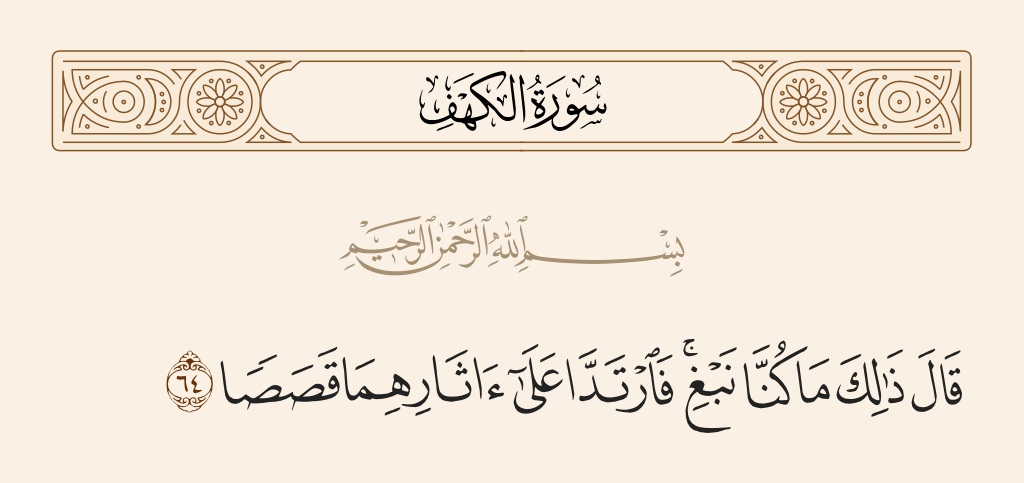 سُورَةُ الكَهْفِ
بِسْمِ ٱللَّهِ ٱلرَّحْمَٰنِ ٱلرَّحِيمِ
قَالَ ذَٰلِكَ مَا كُنَّا نَبْغِ ۚ فَٱرْتَدَّا عَلَىٰٓ ءَاثَارِهِمَا قَصَصًا ٦٤